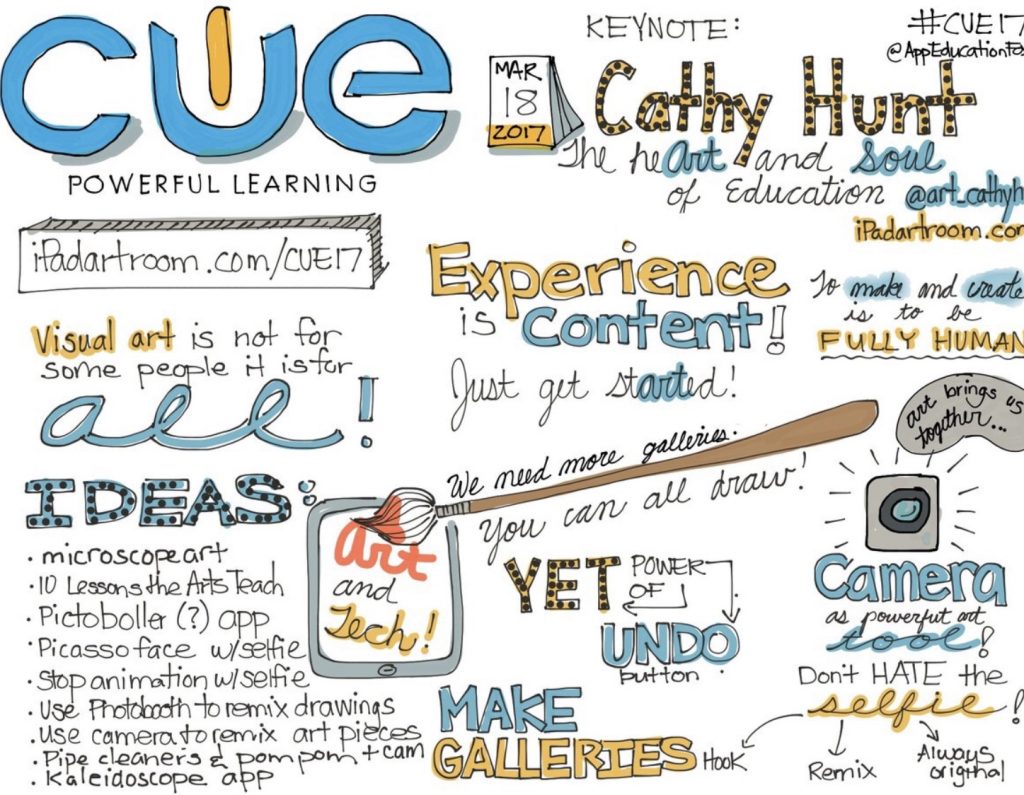 CUE
POWERFUL LEARNING
iPadartroom.com/CUE17
Visual art is not for
some people it is for
all!
IDEAS:
· microscope art
· 10 Lessons the Arts Teach
· Pictoboller (?) app
· Picasso face w/selfie
· Stop animation w/selfie
· Use Photobooth to remix drawings
· Use camera to remix art pieces
· Pipe cleaners & pom pom + cam
· Kaleidoscope app
KEYNOTE:
#CUE17
@AppEducationFo
MAR
18
2017
Cathy Hunt
The heArt and Soul
of Education @art_cathyh
iPadartroom.com
Experience
is Content!
Just get started!
To make and create
is to be
FULLY HUMAN
art brings us
together...
We need more galleries.
You can all draw!
Art
and
Tech!
YET POWER
OF
UNDO
button
Camera
as powerful art
tool!
Don't HATE the
selfie!
Hook
Remix
Always
original
MAKE
GALLERIES